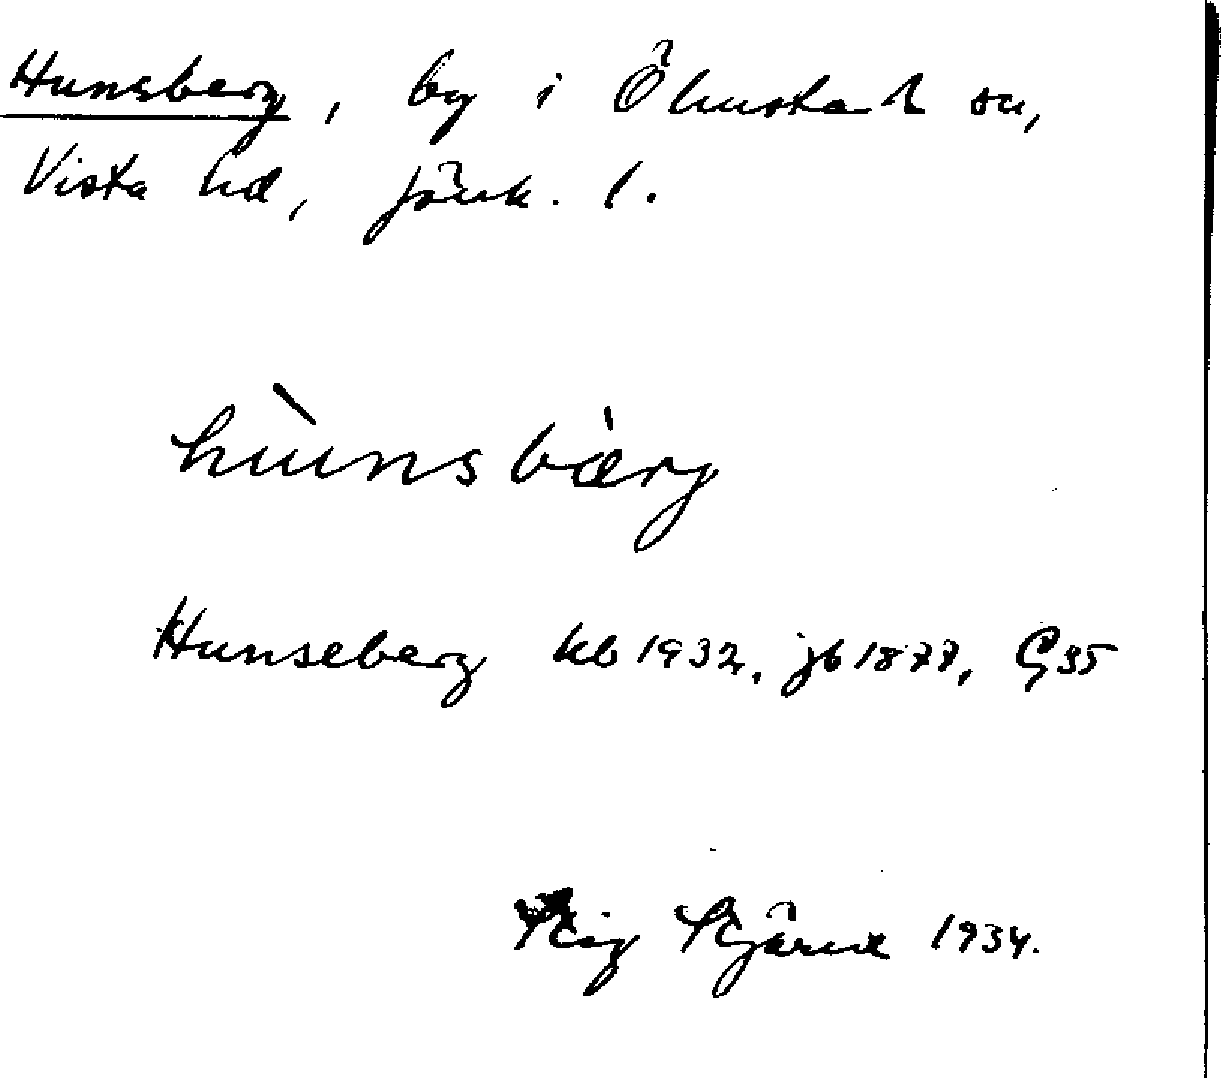 Hunsberg, by i Ölmstad sn,
Vista hd, Jönk. l.
hùnsbærj
Hunseberg kb 1932, jb 1877, G 35
Stig Stjärne 1934.